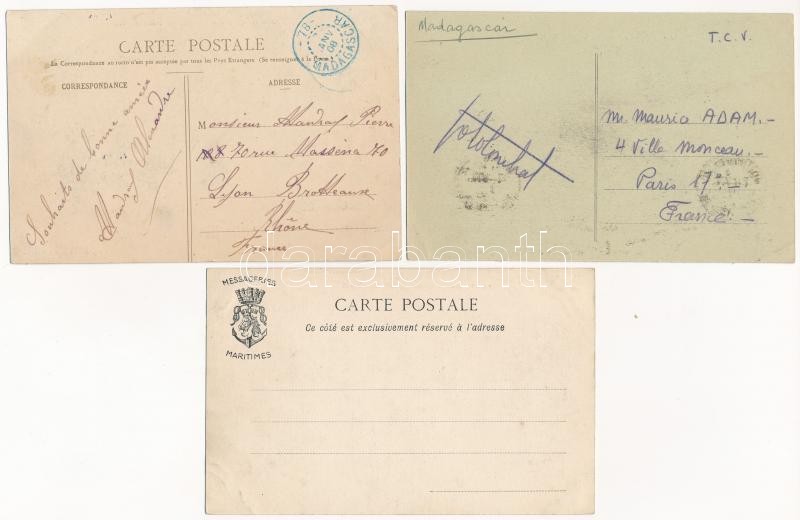 CARTE POSTALE
La Correspondance au recto n'est pas acceptée par tous les Pays Etrangers (Se renseigner à la Poste)
CORRESPONDANCE
ADRESSE
78
JANV
08
MADAGASCAR
Souhaits de bonne année
Monsieur Pierre
70 rue Masséna 70
Lyon Brotteaux
Rhône
France
Madagascar
T.C.V.
Mr Maurice ADAM.-
4 Villa Monceau.-
Paris 17e
France.-
darabanth
MESSAGERIES
MARITIMES
CARTE POSTALE
Ce côté est exclusivement réservé à l'adresse